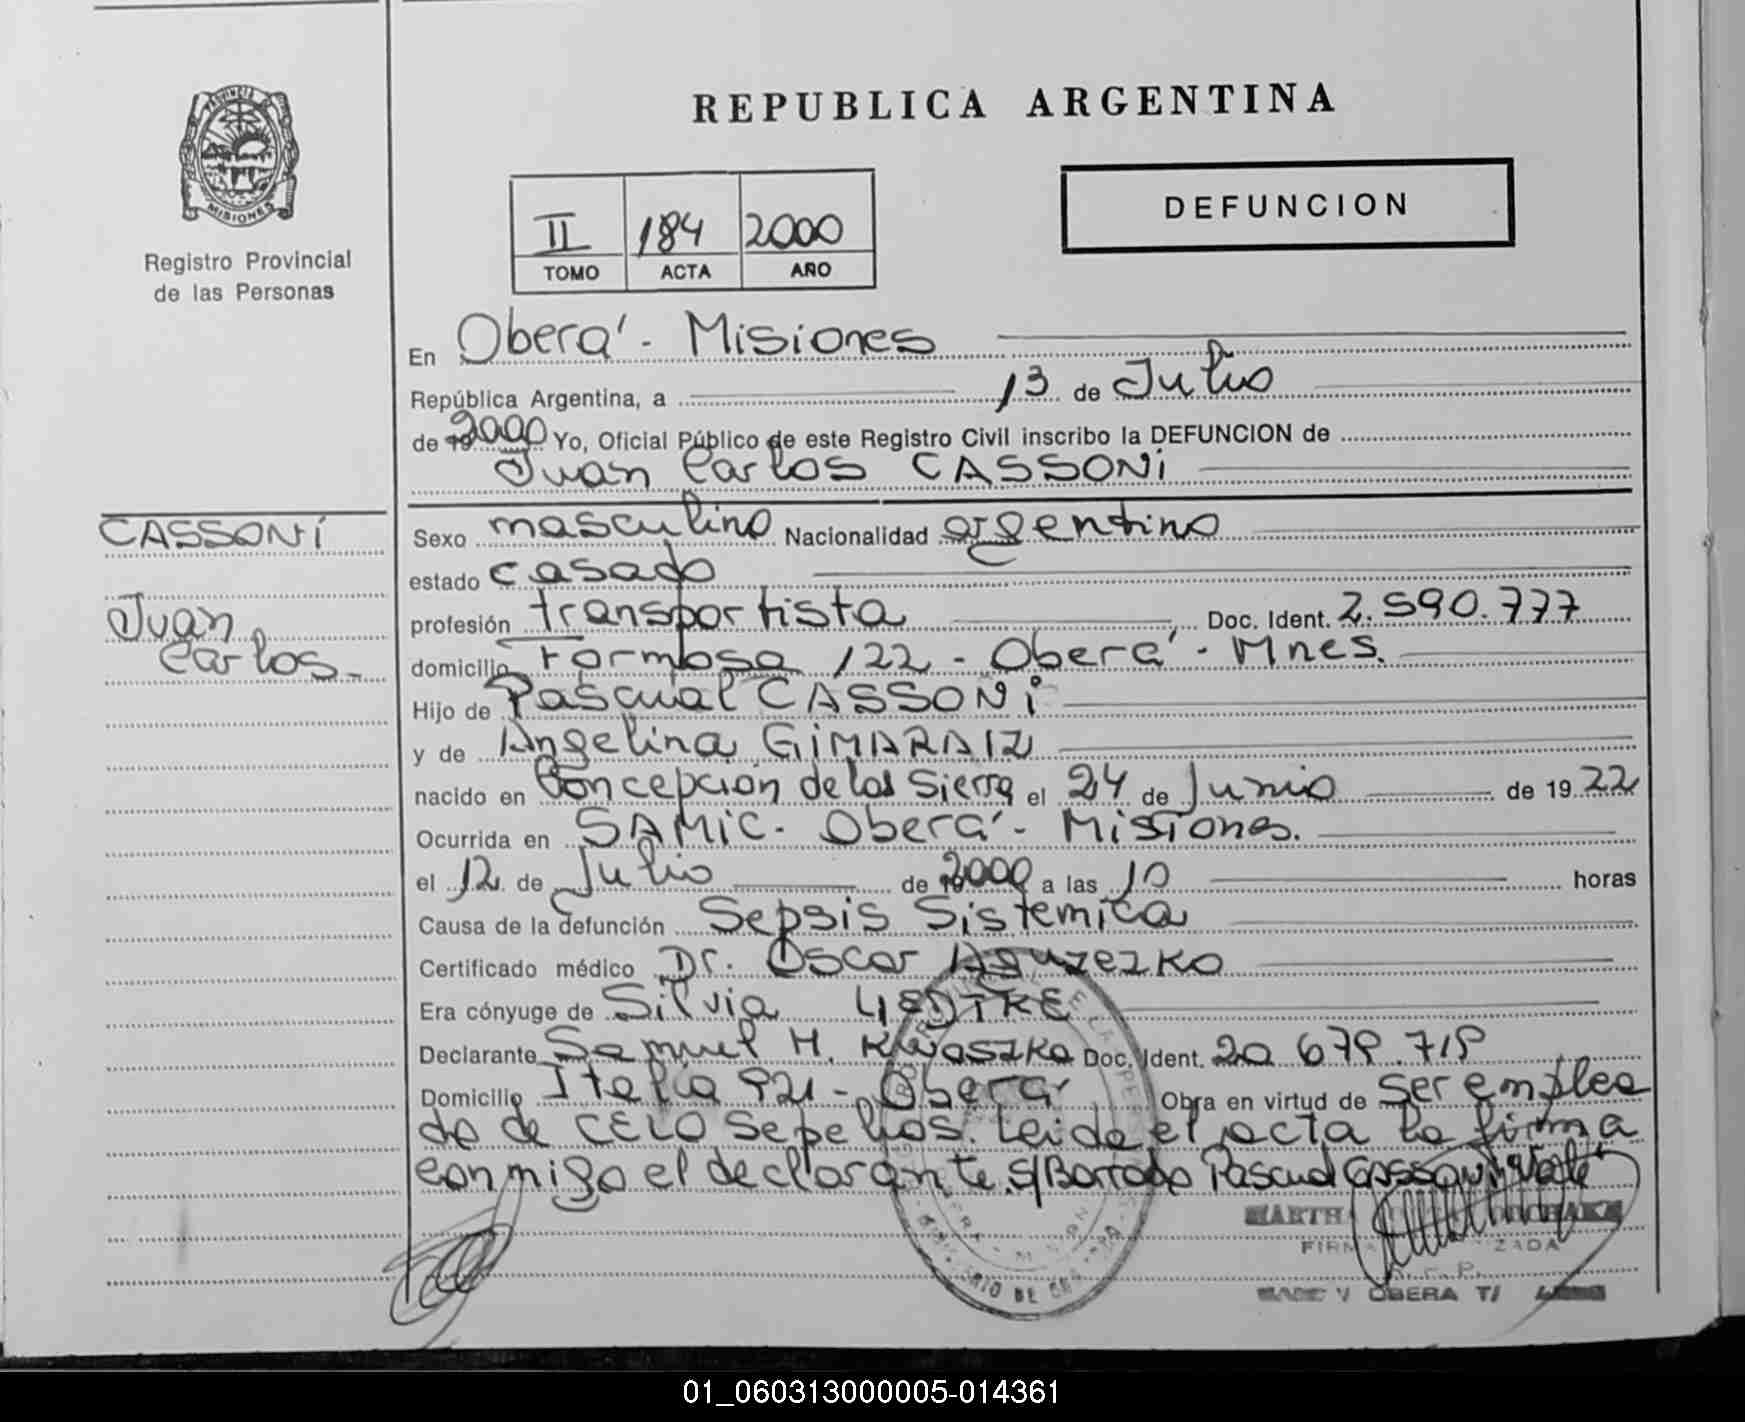 PROVINCIA D
MISIONES
Registro Provincial
de las Personas
REPUBLICA ARGENTINA
DEFUNCION
II 184 2000
TOMO ACTA AÑO
En Oberá - Misiones
República Argentina, a 13 de Julio
de 2000 Yo, Oficial Público de este Registro Civil inscribo la DEFUNCION de
Juan Carlos CASSONi
CASSONi
Juan
Carlos.-
Sexo masculino Nacionalidad argentino
estado casado
profesión transportista Doc. Ident. 2.590.777
domicilio Formosa 122 - Oberá - Mnes.
Hijo de Pascual CASSONi
y de Angelina GiMARAIZ
nacido en Concepción de las Sierra el 24 de Junio de 1922
Ocurrida en SAMIC - Oberá - Misiones.
el 12 de Julio de 2000 a las 10 horas
Causa de la defunción Sepsis Sistemica
Certificado médico Dr. Oscar
Era cónyuge de Silvia LiEDTKE
Declarante Samuel H. Doc. Ident. 20 679.719
Domicilio Italia 921 - Oberá Obra en virtud de ser emplea
do de CELO Sepelios. Leida el acta la firma
conmigo el declarante. S/Borrado Pascual CASSONi Vale
MARTH
FIRMA ZADA
R. C. P.
OBERA
01_060313000005-014361